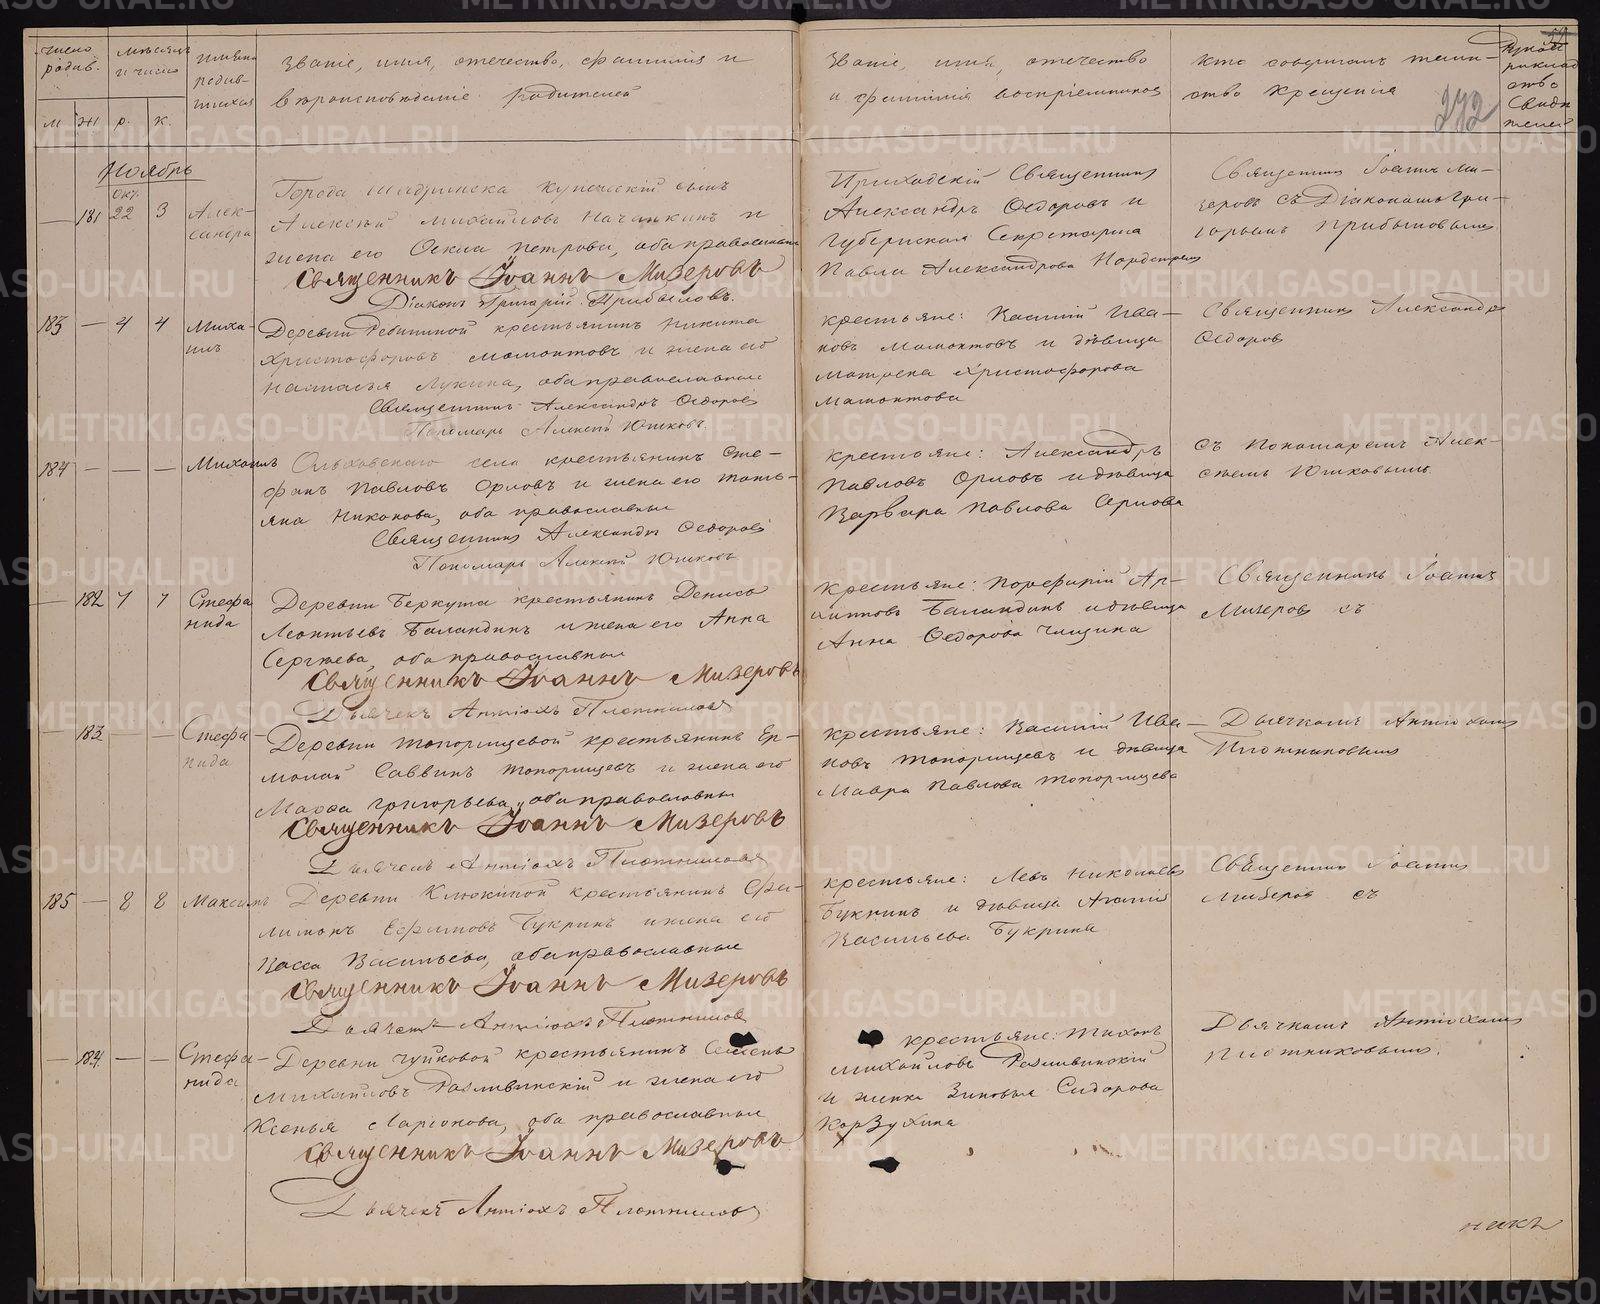 число родив.
мѣсяцъ и число
имена родив-шихся
Званіе, имя, отечество, фамилія и
вѣроисповѣданіе родителей
м ж р. к.
Ноябрь
— 181 Окт. 22 3 Алек-сандра
Города Шадринска купеческій сынъ
Алексѣй Михайловъ Начапкинъ и
жена его Ѳекла Петрова, оба православные
Священникъ Іоаннъ Мизеровъ
Діаконъ Григорій Прибыловъ.
183 — 4 4 Миха-илъ
Деревни крестьянинъ Никита
Христофоровъ Мамонтовъ и жена его
Наталья Лукина, оба православные
Священникъ Александръ Ѳедоровъ
Пономарь Алексѣй Юшковъ.
184 — — — Михаилъ
Ольховскаго села крестьянинъ Сте-
фанъ Павловъ Орловъ и жена его Тать-
яна Никонова, оба православные
Священникъ Александръ Ѳедоровъ
Пономарь Алексѣй Юшковъ
— 182 7 7 Стефа-нида
Деревни Беркута крестьянинъ Денисъ
Леонтьевъ Баландинъ и жена его Анна
Сергѣева, оба православные
Священникъ Іоаннъ Мизеровъ
Дьячекъ Антіохъ Плотниковъ
— 183 — — Стефа-нида
Деревни Топорищевой крестьянинъ Ер-
молай Саввинъ Топорищевъ и жена его
Марѳа Григорьева, оба православные
Священникъ Іоаннъ Мизеровъ
Дьячекъ Антіохъ Плотниковъ
185 — 8 8 Максимъ
Деревни Клюкиной крестьянинъ Фи-
лимонъ Ефимовъ Букринъ и жена его
Васса Васильева, оба православные
Священникъ Іоаннъ Мизеровъ
Дьячекъ Антіохъ Плотниковъ
— 184. — — Стефа-нида
Деревни Чупковой крестьянинъ Семенъ
Михайловъ Разливинскій и жена его
Ксенья Ларіонова, оба православные
Священникъ Іоаннъ Мизеровъ
Дьячекъ Антіохъ Плотниковъ
Званіе, имя, отечество
и фамилія воспріемниковъ
Кто совершалъ таин-
ство крещенія
272
Рукоприкладство Свидѣтелей
Приходскій Священникъ
Александръ Ѳедоровъ и
Губернская Секретарша
Павла Александрова Нордстремъ
Священникъ Іоаннъ Ми-
зеровъ съ Діакономъ Гри-
горьемъ Прибыловымъ
крестьяне: Василій Ива-
новъ Мамонтовъ и дѣвица
Матрена Христофорова
Мамонтова
Священникъ Александръ
Ѳедоровъ
крестьяне: Александръ
Павловъ Орловъ и дѣвица
Варвара Павлова Орлова
съ Пономаремъ Алек-
сѣемъ Юшковымъ.
крестьяне: Порфирій Ар-
Баландинъ и дѣвица
Анна Ѳедорова
Священникъ Іоаннъ
Мизеровъ съ
крестьяне: Василій Ива-
новъ Топорищевъ и дѣвица
Мавра Павлова Топорищева
Дьячкомъ Антіохомъ
Плотниковымъ
крестьяне: Левъ Николаевъ
Букринъ и дѣвица
Васильева Букрина
Священникъ Іоаннъ
Мизеровъ съ
крестьяне: Тихонъ
Михайловъ Разливинскій
и женка Зиновья Сидорова
Корзухина
Дьячкомъ Антіохомъ
Плотниковымъ.
METRIKI.GASO-URAL.RU